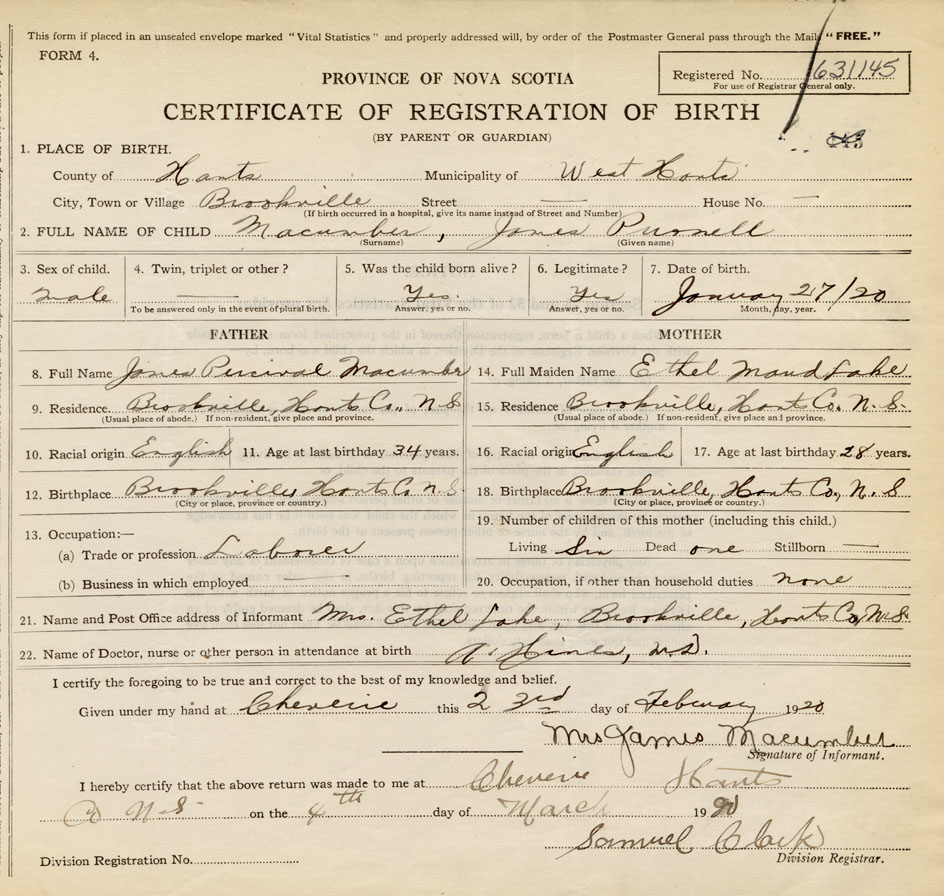 This form if placed in an unsealed envelope marked "Vital Statistics" and properly addressed will, by order of the Postmaster General pass through the Mail "FREE."
FORM 4.
Registered No. 631145
For use of Registrar General only.
PROVINCE OF NOVA SCOTIA
CERTIFICATE OF REGISTRATION OF BIRTH
(BY PARENT OR GUARDIAN)
1. PLACE OF BIRTH.
County of Hants Municipality of West Hants
City, Town or Village Brookville Street — House No. —
(If birth occurred in a hospital, give its name instead of Street and Number)
2. FULL NAME OF CHILD Macumber, James Purnell
(Surname) (Given name)
3. Sex of child. 4. Twin, triplet or other? 5. Was the child born alive? 6. Legitimate? 7. Date of birth.
male — Yes. Yes January 27/20
To be answered only in the event of plural birth. Answer, yes or no. Answer, yes or no. Month, day, year.
FATHER MOTHER
8. Full Name James Percival Macumber 14. Full Maiden Name Ethel Maud Lake
9. Residence. Brookville, Hants Co., N S 15. Residence Brookville, Hants Co. N. S.
(Usual place of abode.) If non-resident, give place and province. (Usual place of abode.) If non-resident, give place and province.
10. Racial origin English 11. Age at last birthday 34 years. 16. Racial origin English 17. Age at last birthday 28 years.
12. Birthplace Brookville, Hants Co N S 18. Birthplace Brookville, Hants Co, N. S
(City or place, province or country.) (City or place, province or country.)
13. Occupation:— 19. Number of children of this mother (including this child.)
(a) Trade or profession Laborer Living Six Dead one Stillborn —
(b) Business in which employed — 20. Occupation, if other than household duties none
21. Name and Post Office address of Informant Mrs. Ethel Lake, Brookville, Hants Co, N.S.
22. Name of Doctor, nurse or other person in attendance at birth Hines, M.D.
I certify the foregoing to be true and correct to the best of my knowledge and belief.
Given under my hand at Cheverie this 23rd day of February 1920
Mrs James Macumber
Signature of Informant.
I hereby certify that the above return was made to me at Cheverie Hants
Co N S on the 4th day of March 1920
Samuel Clark
Division Registrar.
Division Registration No.